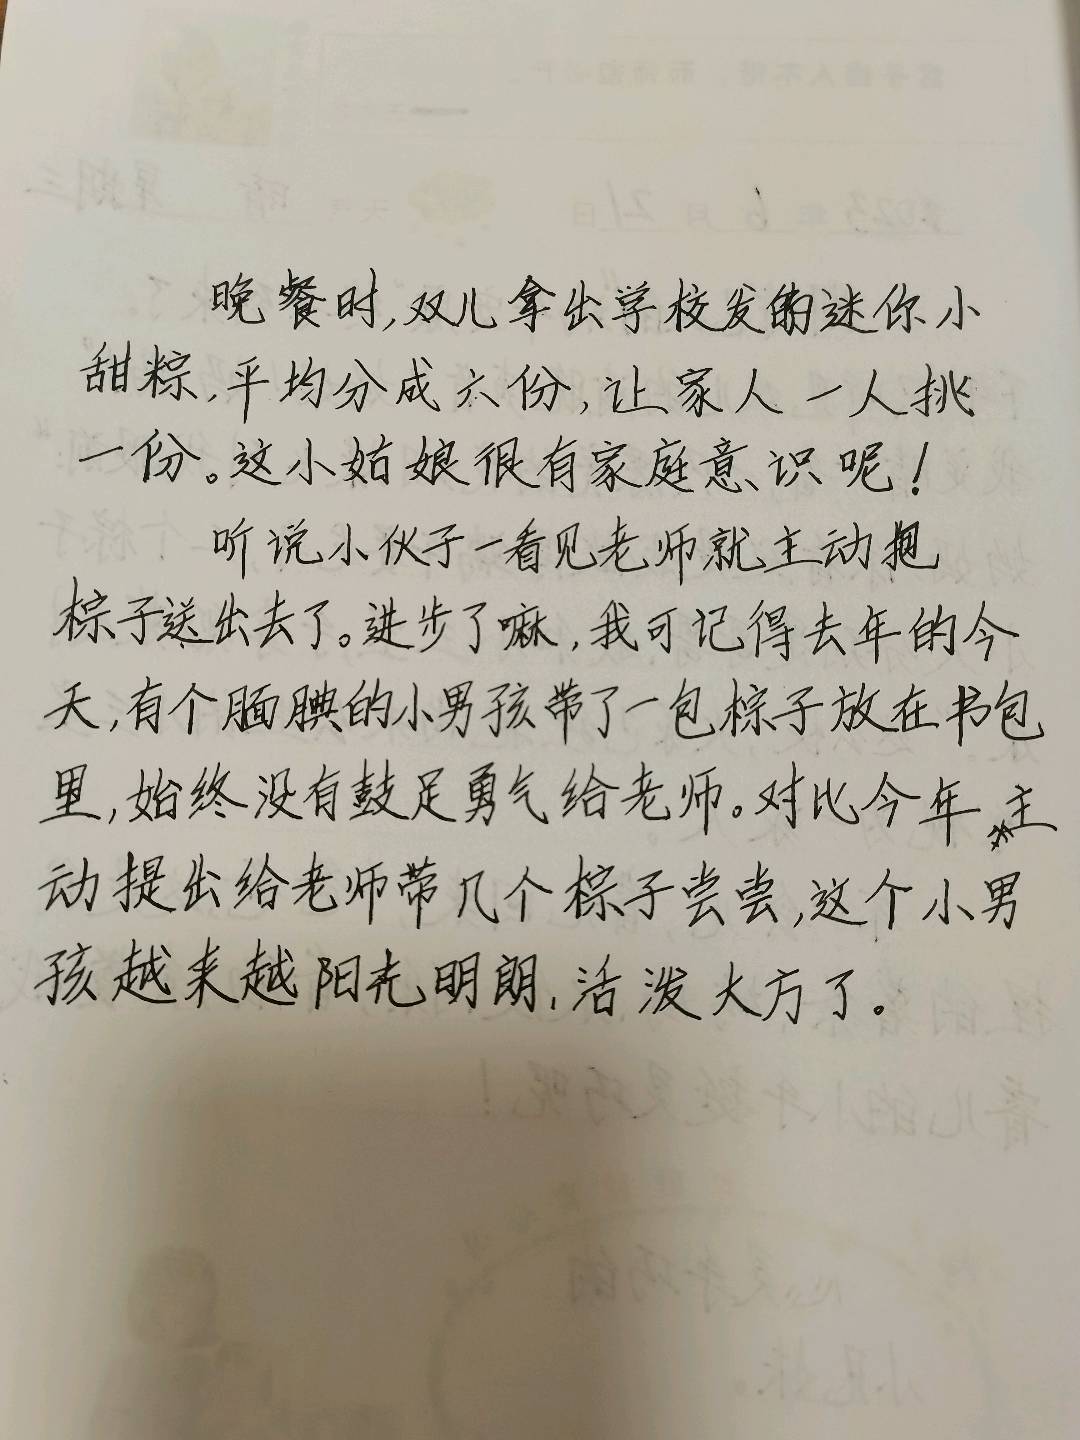 晚餐时,双儿拿出学校发的迷你小
甜粽,平均分成六份,让家人一人挑
一份。这小姑娘很有家庭意识呢!
听说小伙子一看见老师就主动把
粽子送出去了。进步了嘛,我可记得去年的今
天,有个腼腆的小男孩带了一包粽子放在书包
里,始终没有鼓足勇气给老师。对比今年主
动提出给老师带几个粽子尝尝,这个小男
孩越来越阳光明朗,活泼大方了。